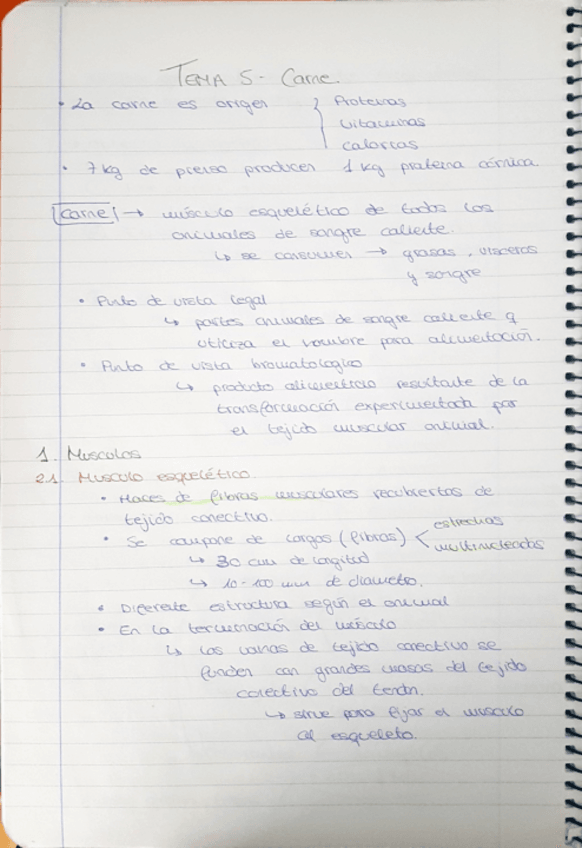 TEMA 5- Carne.
• La carne es origen { Proteínas
vitaminas
calorías
• 7 kg de pienso producen 1 kg proteína cárnica.
Carne → músculo esquelético de todos los
animales de sangre caliente.
↳ se consumen → grasas, vísceras
y sangre
• Punto de vista legal
↳ partes animales de sangre caliente q
utiliza el hombre para alimentación.
• Punto de vista bromatologico
↳ producto alimenticio resultante de la
transformación experimentada por
el tejido muscular animal.
1. Musculos
2.1. Musculo esquelético.
• Haces de fibras musculares recubiertos de
tejido conectivo.
• Se compone de largas (fibras) < estrechas
multinucleadas
↳ 30 cm de longitud
↳ 10-100 mm de diametro.
• Diferente estructura según el animal
• En la terminación del músculo
↳ las vainas de tejido conectivo se
funden con grandes masas del tejido
conectivo del tendon.
↳ sirve para fijar el musculo
al esqueleto.